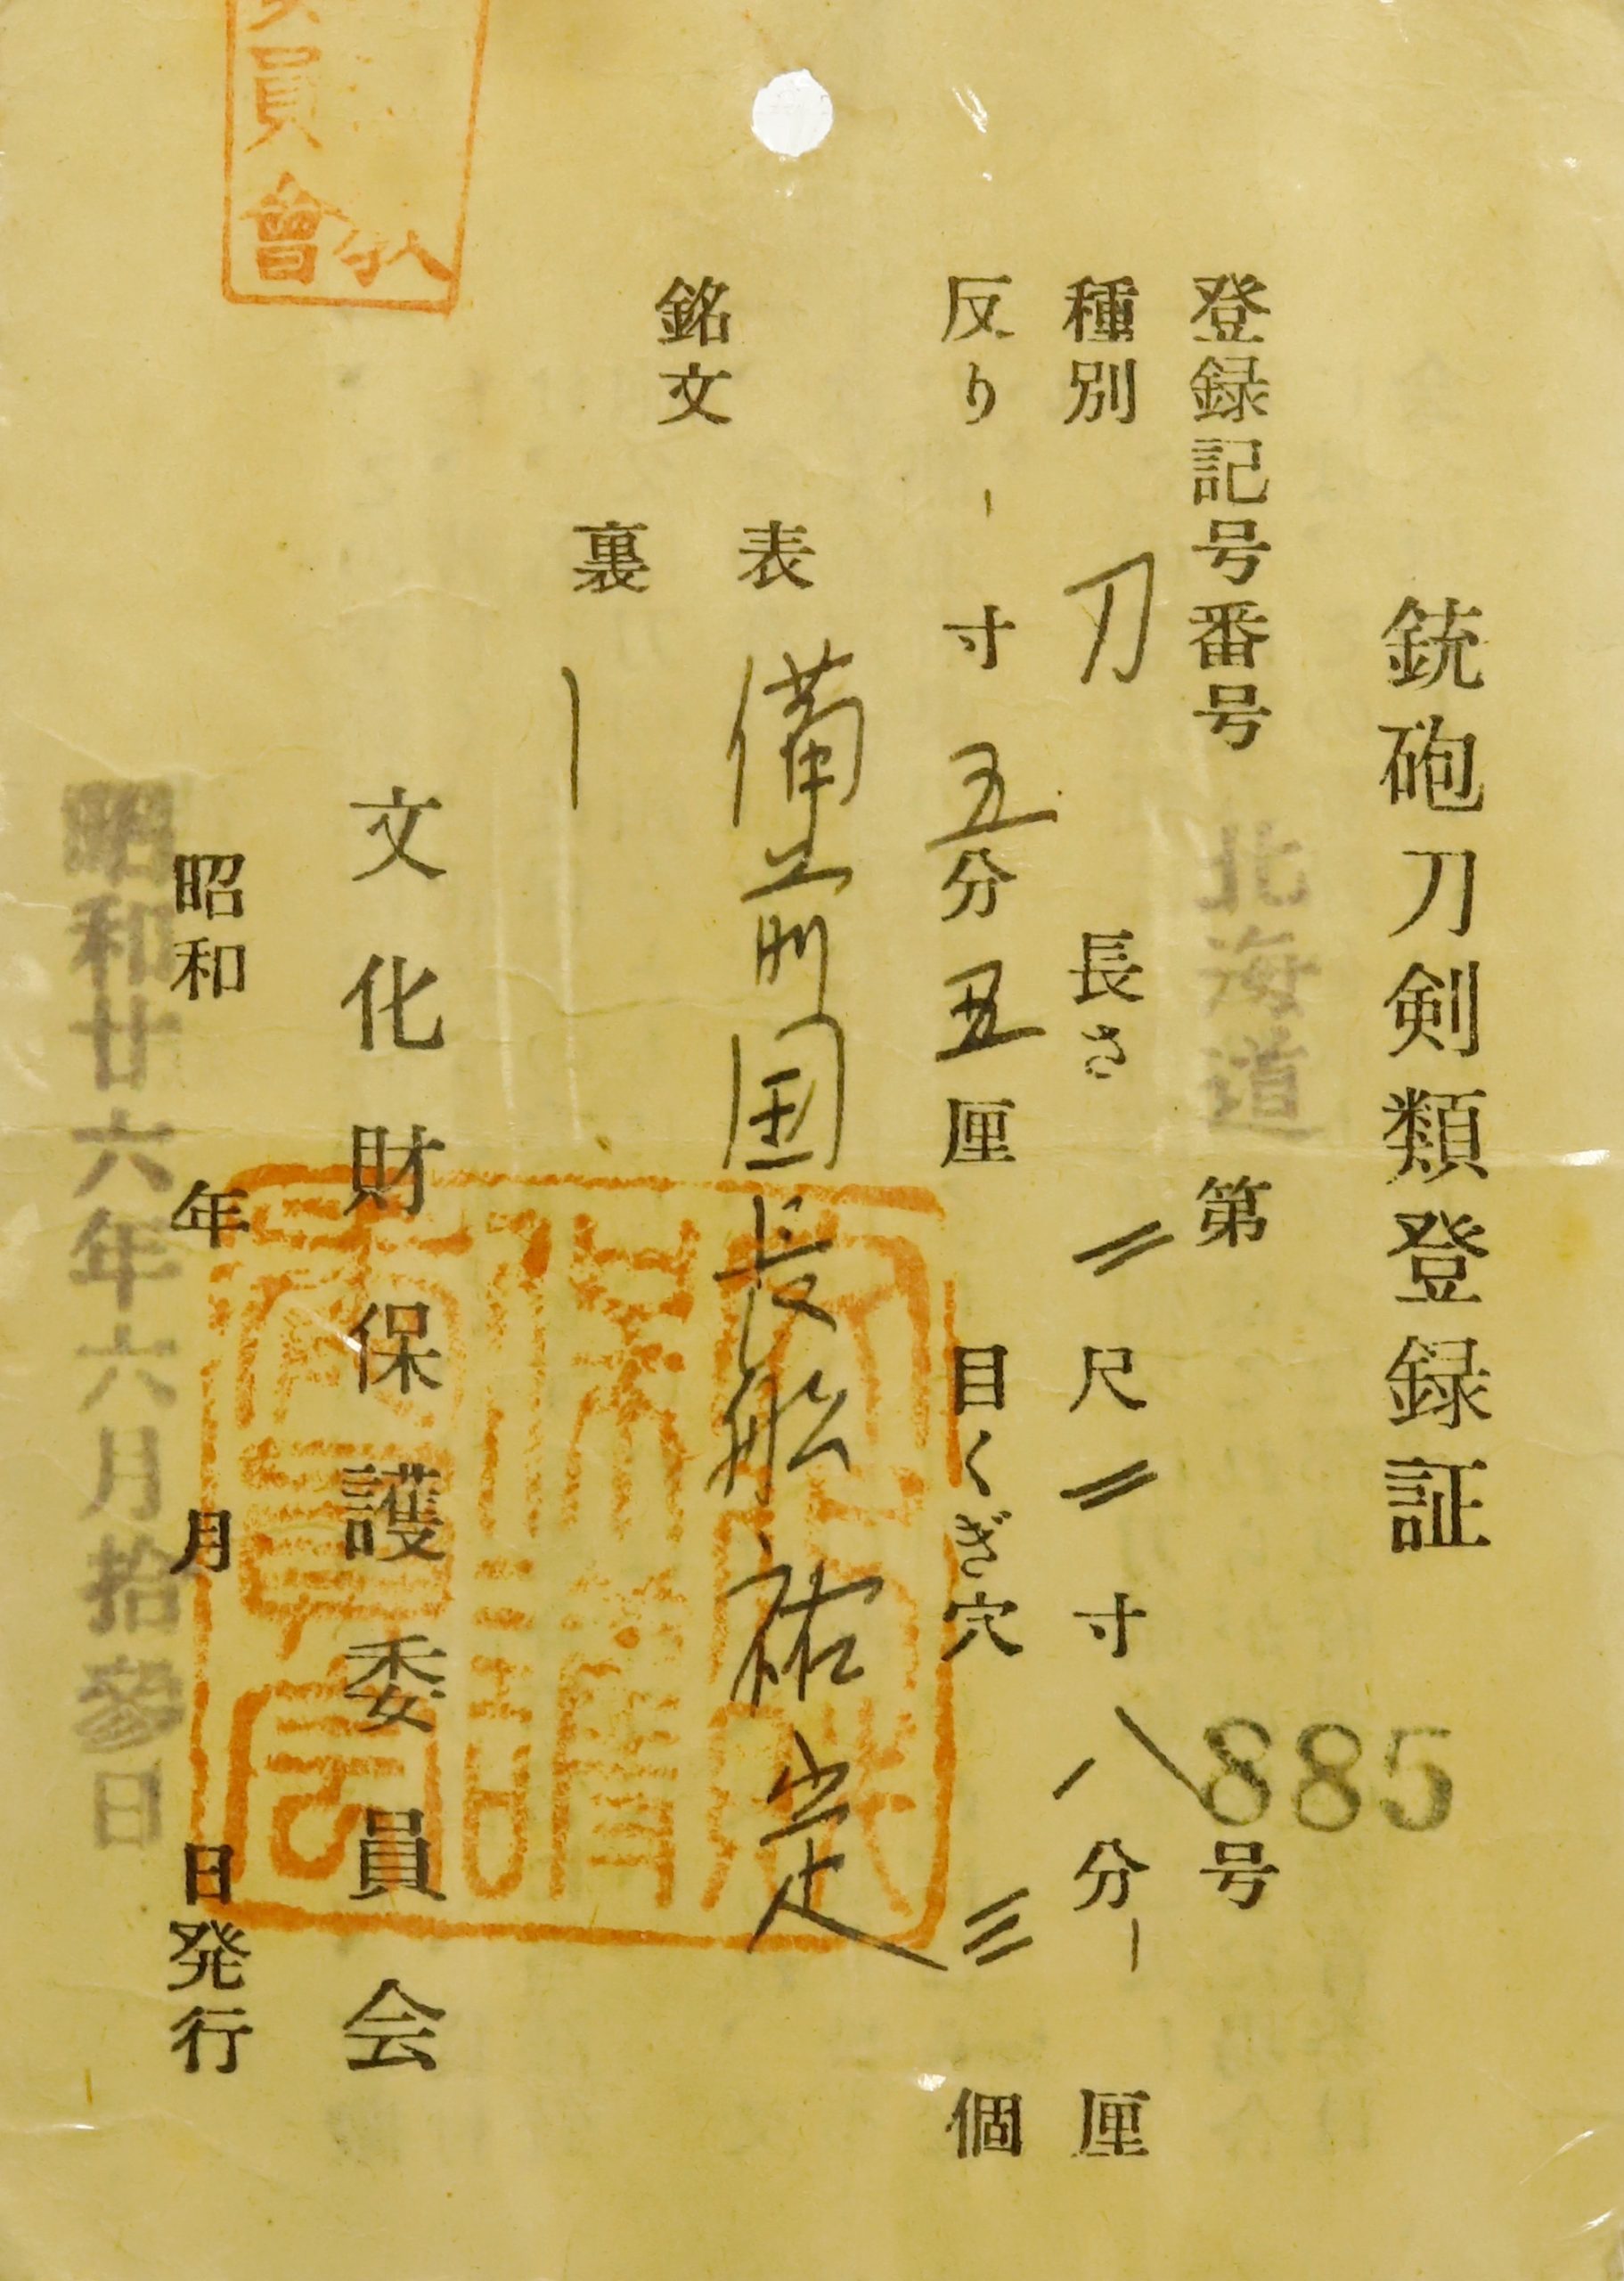 銃砲刀剣類登録証
登録記号番号 北海道 第 885 号
種別 刀 長さ 二尺二寸八分 ー 厘
反り ー 寸五分五厘 目くぎ穴 三 個
銘文
表 備前国長船祐定
裏 ー
文化財保護委員会
昭和 年 月 日発行
昭和廿六年六月拾参日
員會